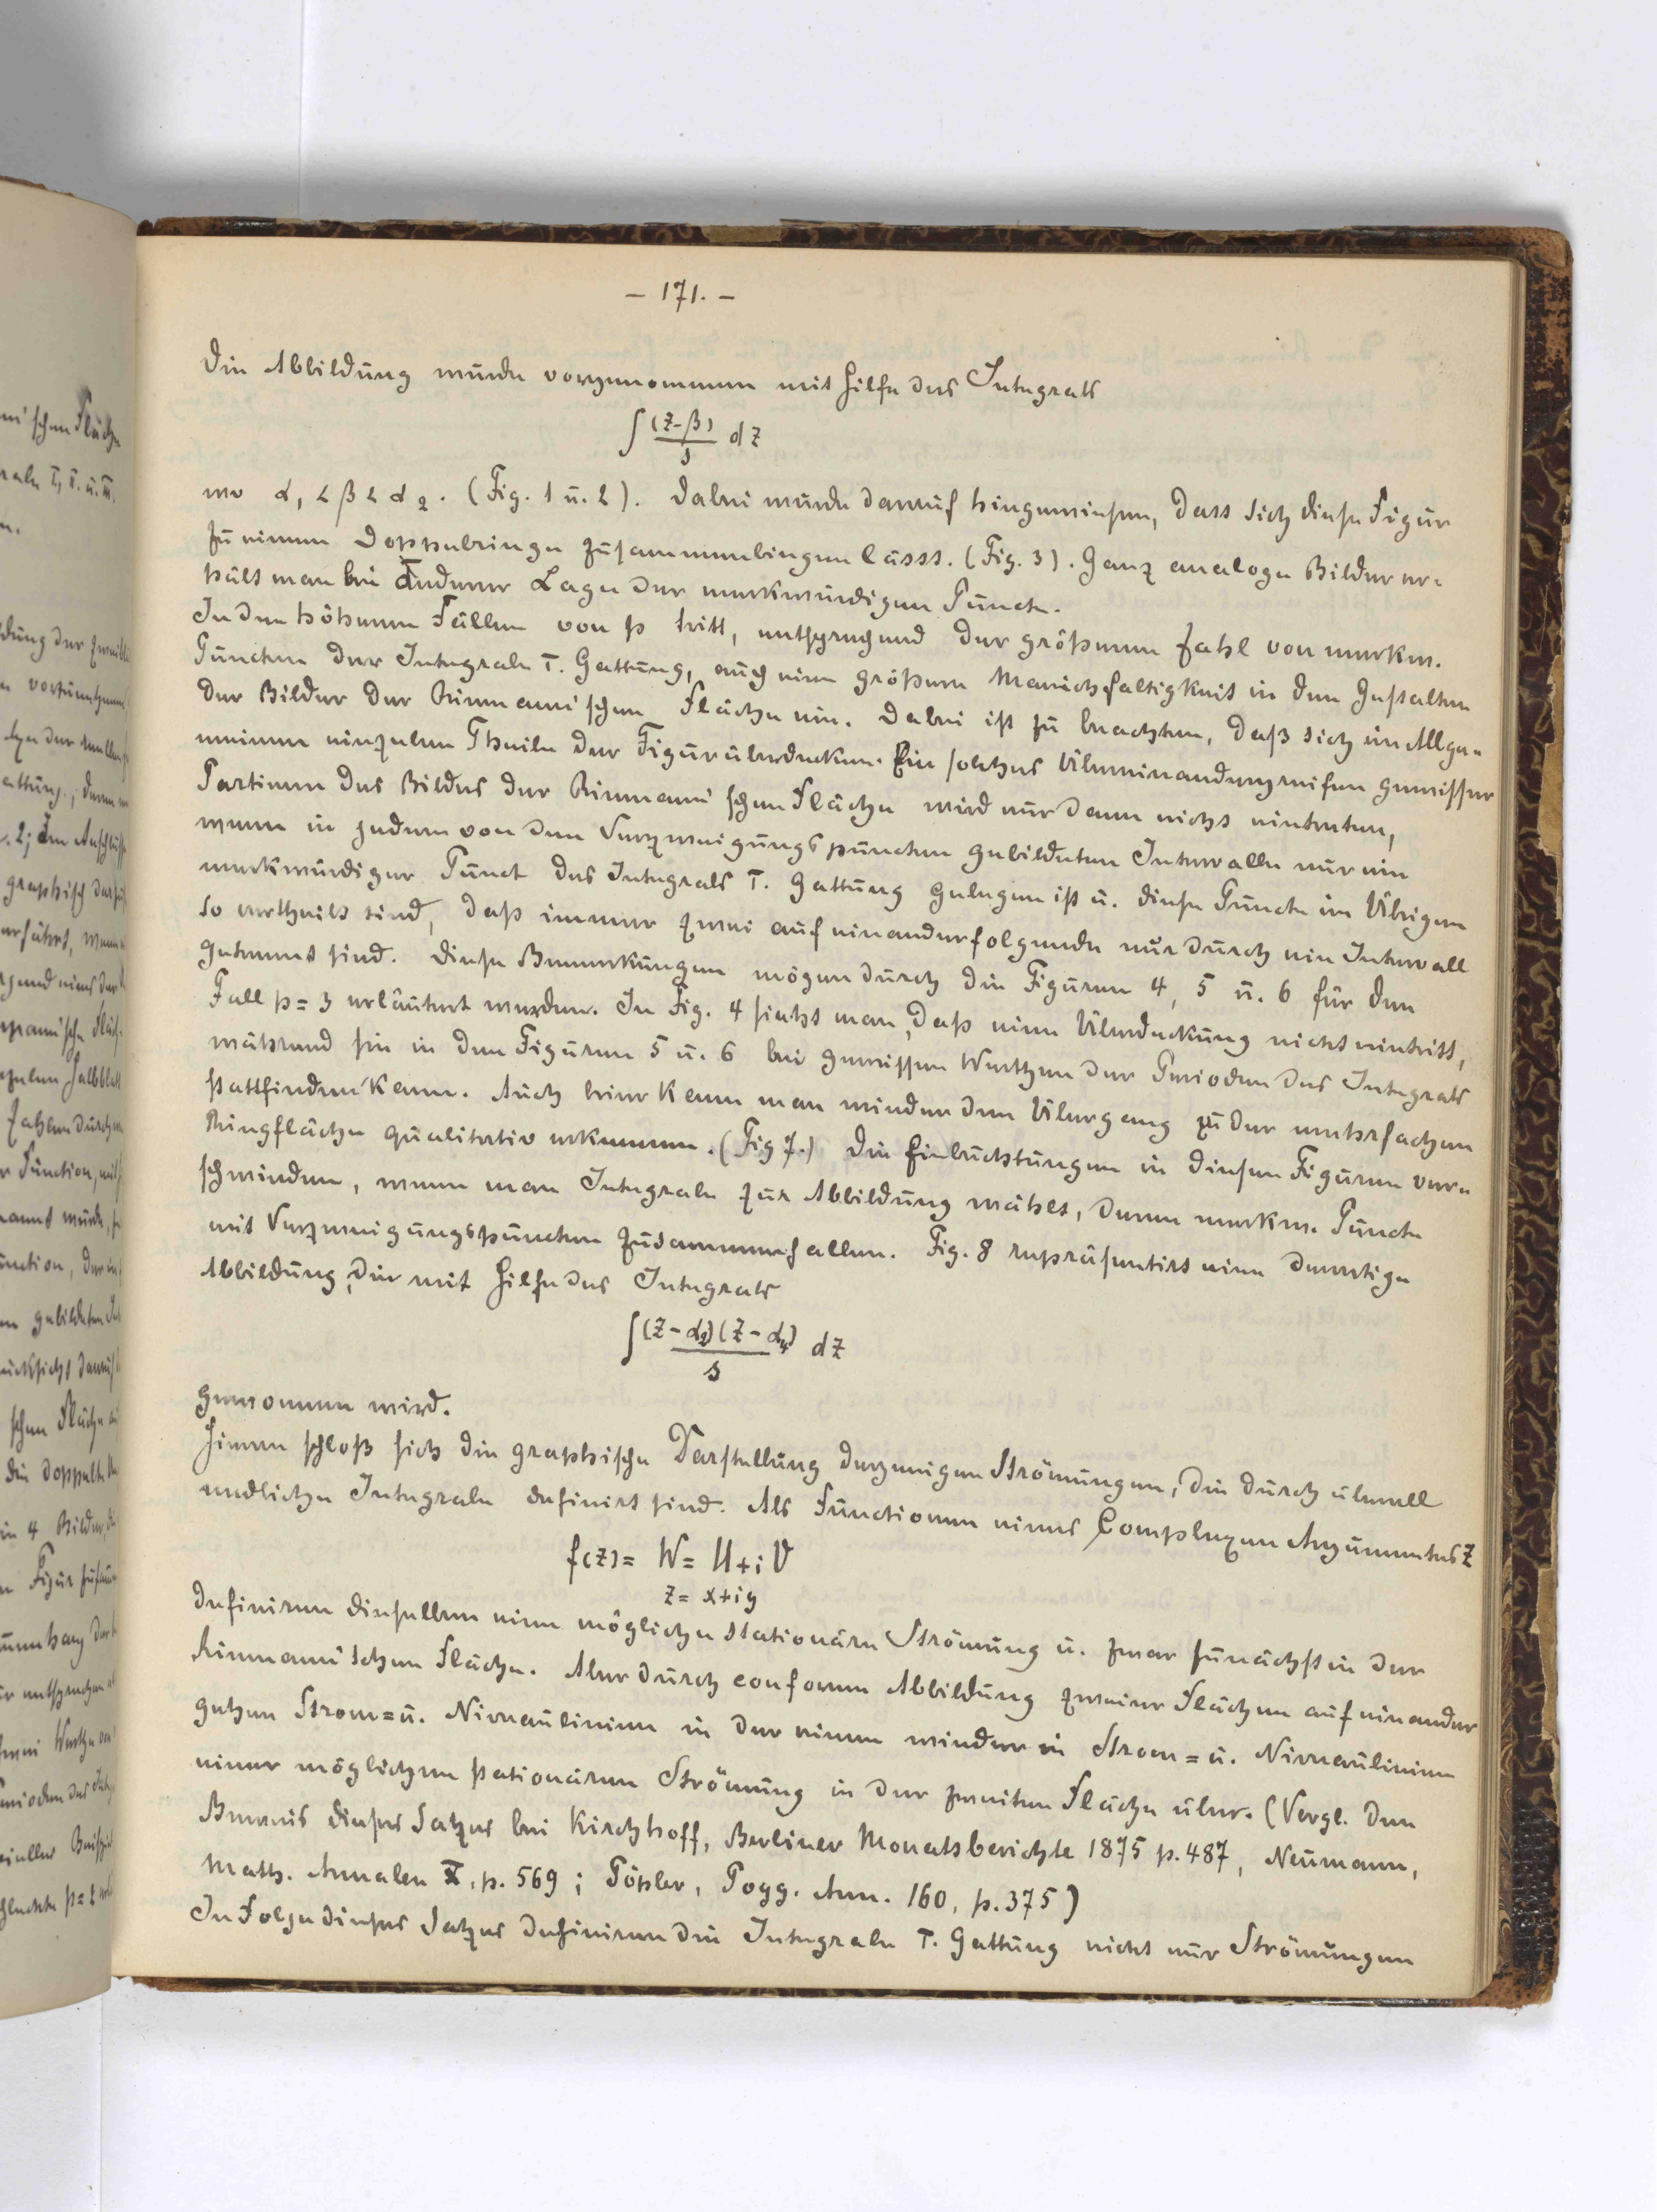 - 171. -
Die Abbildung wurde vorgenommen mit Hilfe des Integrals
∫ (z-β)/s dz
wo α₁ < β < α₂. (Fig. 1 u. 2). Dabei wurde darauf hingewiesen, dass sich diese Figur
zu einem Doppelringe zusammenbiegen lässt. (Fig. 3). Ganz analoge Bilder er=
hält man bei anderer Lage der merkwürdigen Puncte.
In den höheren Fällen von p tritt, entsprechend der größeren Zahl von merkw.
Puncten der Integrale I. Gattung, auch eine größere Manichfaltigkeit in den Gestalten
der Bilder der Riemann'schen Fläche ein. Dabei ist zu beachten, daß sich im Allge=
meinen einzelne Theile der Figur überdecken. Ein solches Übereinandergreifen gewisser
Partieen des Bildes der Riemann'schen Fläche wird nur dann nicht eintreten,
wenn in jedem von den Verzweigungspuncten gebildeten Intervalle nur ein
merkwürdiger Punct des Integrals I. Gattung gelegen ist u. diese Puncte im Übrigen
so vertheilt sind, daß immer zwei auf einanderfolgende nur durch ein Intervall
getrennt sind. Diese Bemerkungen mögen durch die Figuren 4, 5 u. 6 für den
Fall p = 3 erläutert werden. In Fig. 4 sieht man, daß eine Überdeckung nicht eintritt,
während sie in den Figuren 5 u. 6 bei gewissen Werthen der Perioden des Integrals
stattfinden kann. Auch hier kann man wieder den Übergang zu der mehrfachen
Ringfläche qualitativ erkennen. (Fig 7.) Die Einbuchtungen in diesen Figuren ver=
schwinden, wenn man Integrale zur Abbildung wählt, deren merkw. Puncte
mit Verzweigungspuncten zusammenfallen. Fig. 8 repräsentirt eine derartige
Abbildung, die mit Hilfe des Integrals
∫ (z-α₂)(z-α₄)/s dz
gewonnen wird.
Hieran schloß sich die graphische Darstellung derjenigen Strömungen, die durch überall
endliche Integrale definirt sind. Als Functionen eines Complexen Argumentes z
f(z) = W = U + i V
z = x + i y
definiren dieselben eine mögliche stationäre Strömung u. zwar zunächst in der
Riemann'schen Fläche. Aber durch conforme Abbildung zweier Flächen auf einander
gehen Strom= u. Niveaulinien in der einen wieder in Strom= u. Niveaulinien
einer möglichen stationären Strömung in der zweiten Fläche über. (Vergl. den
Beweis dieses Satzes bei Kirchhoff, Berliner Monatsberichte 1875 p. 487, Neumann,
Math. Annalen X, p. 569; Töpler, Pogg. Ann. 160, p. 375)
In Folge dieses Satzes definiren die Integrale I. Gattung nicht nur Strömungen